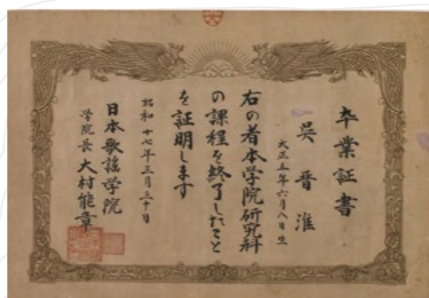 卒業証書
呉晋淮
大正五年六月八日生
右の者本学院研究科
の課程を終了したこと
を証明します
昭和十七年三月三十日
日本歌謡学院
学院長 大村能章